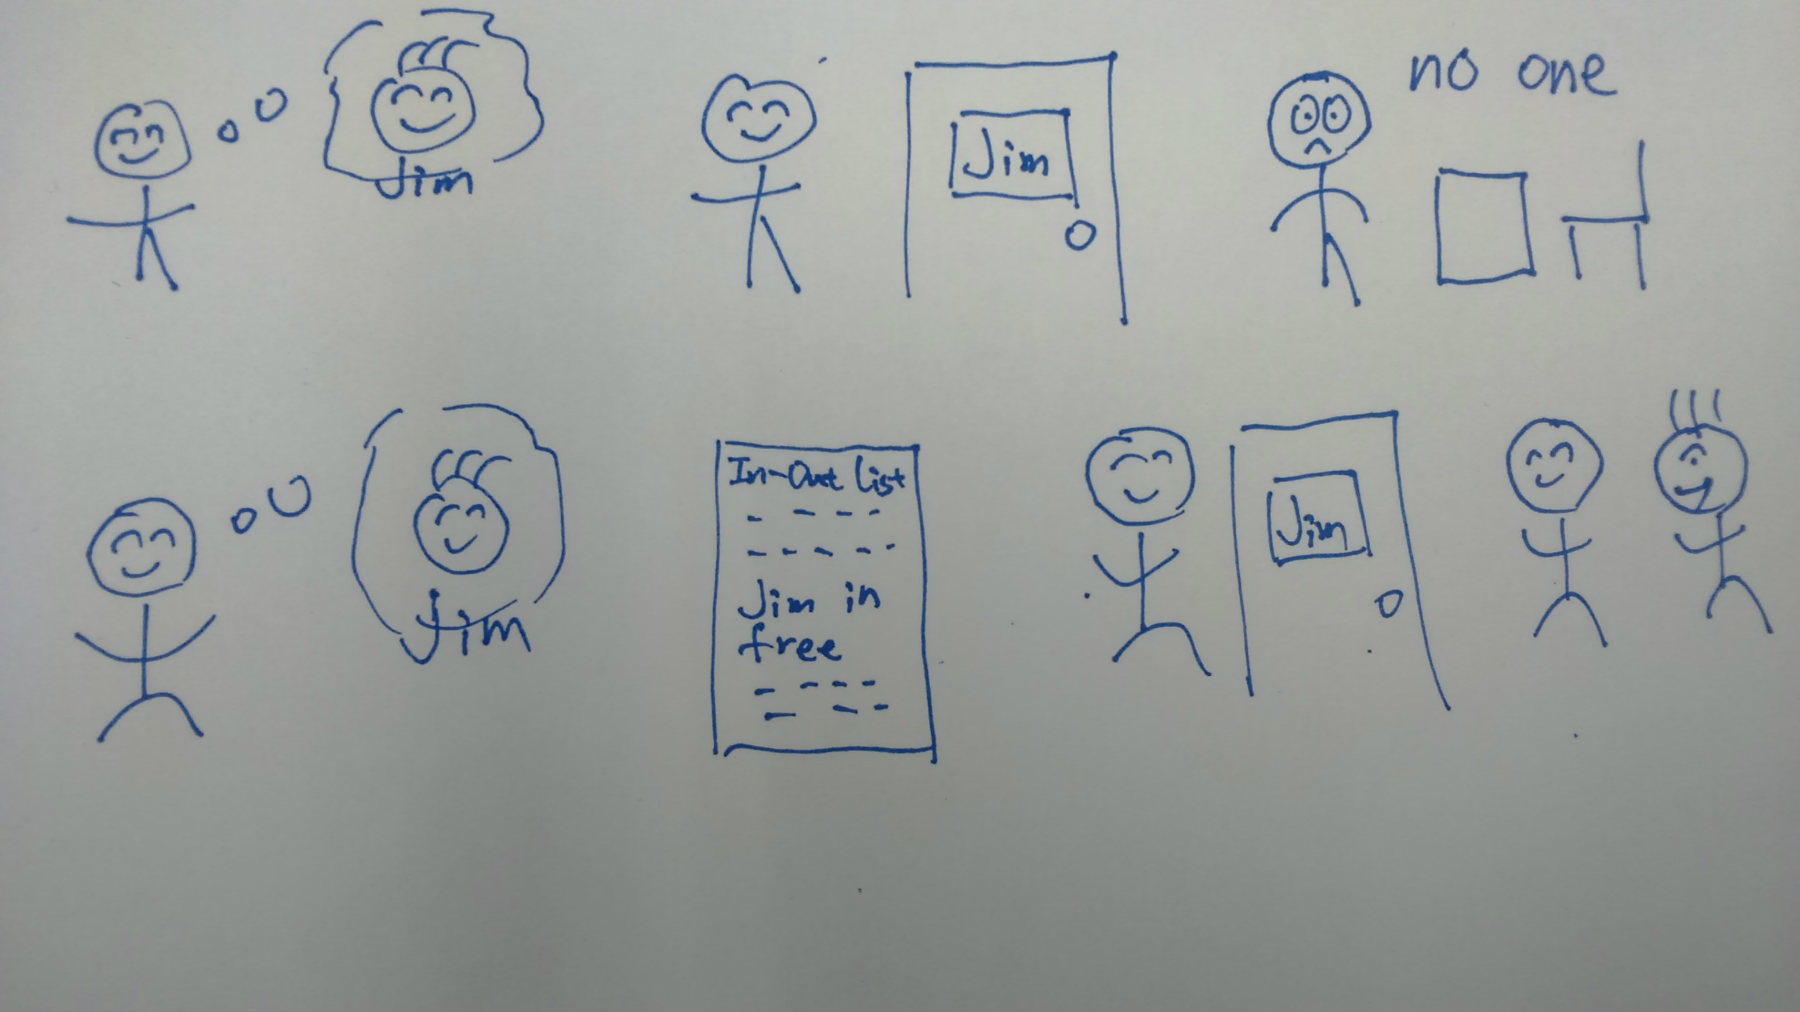 Jim
Jim
no one
Jim
In-Out list
Jim in
free
Jim